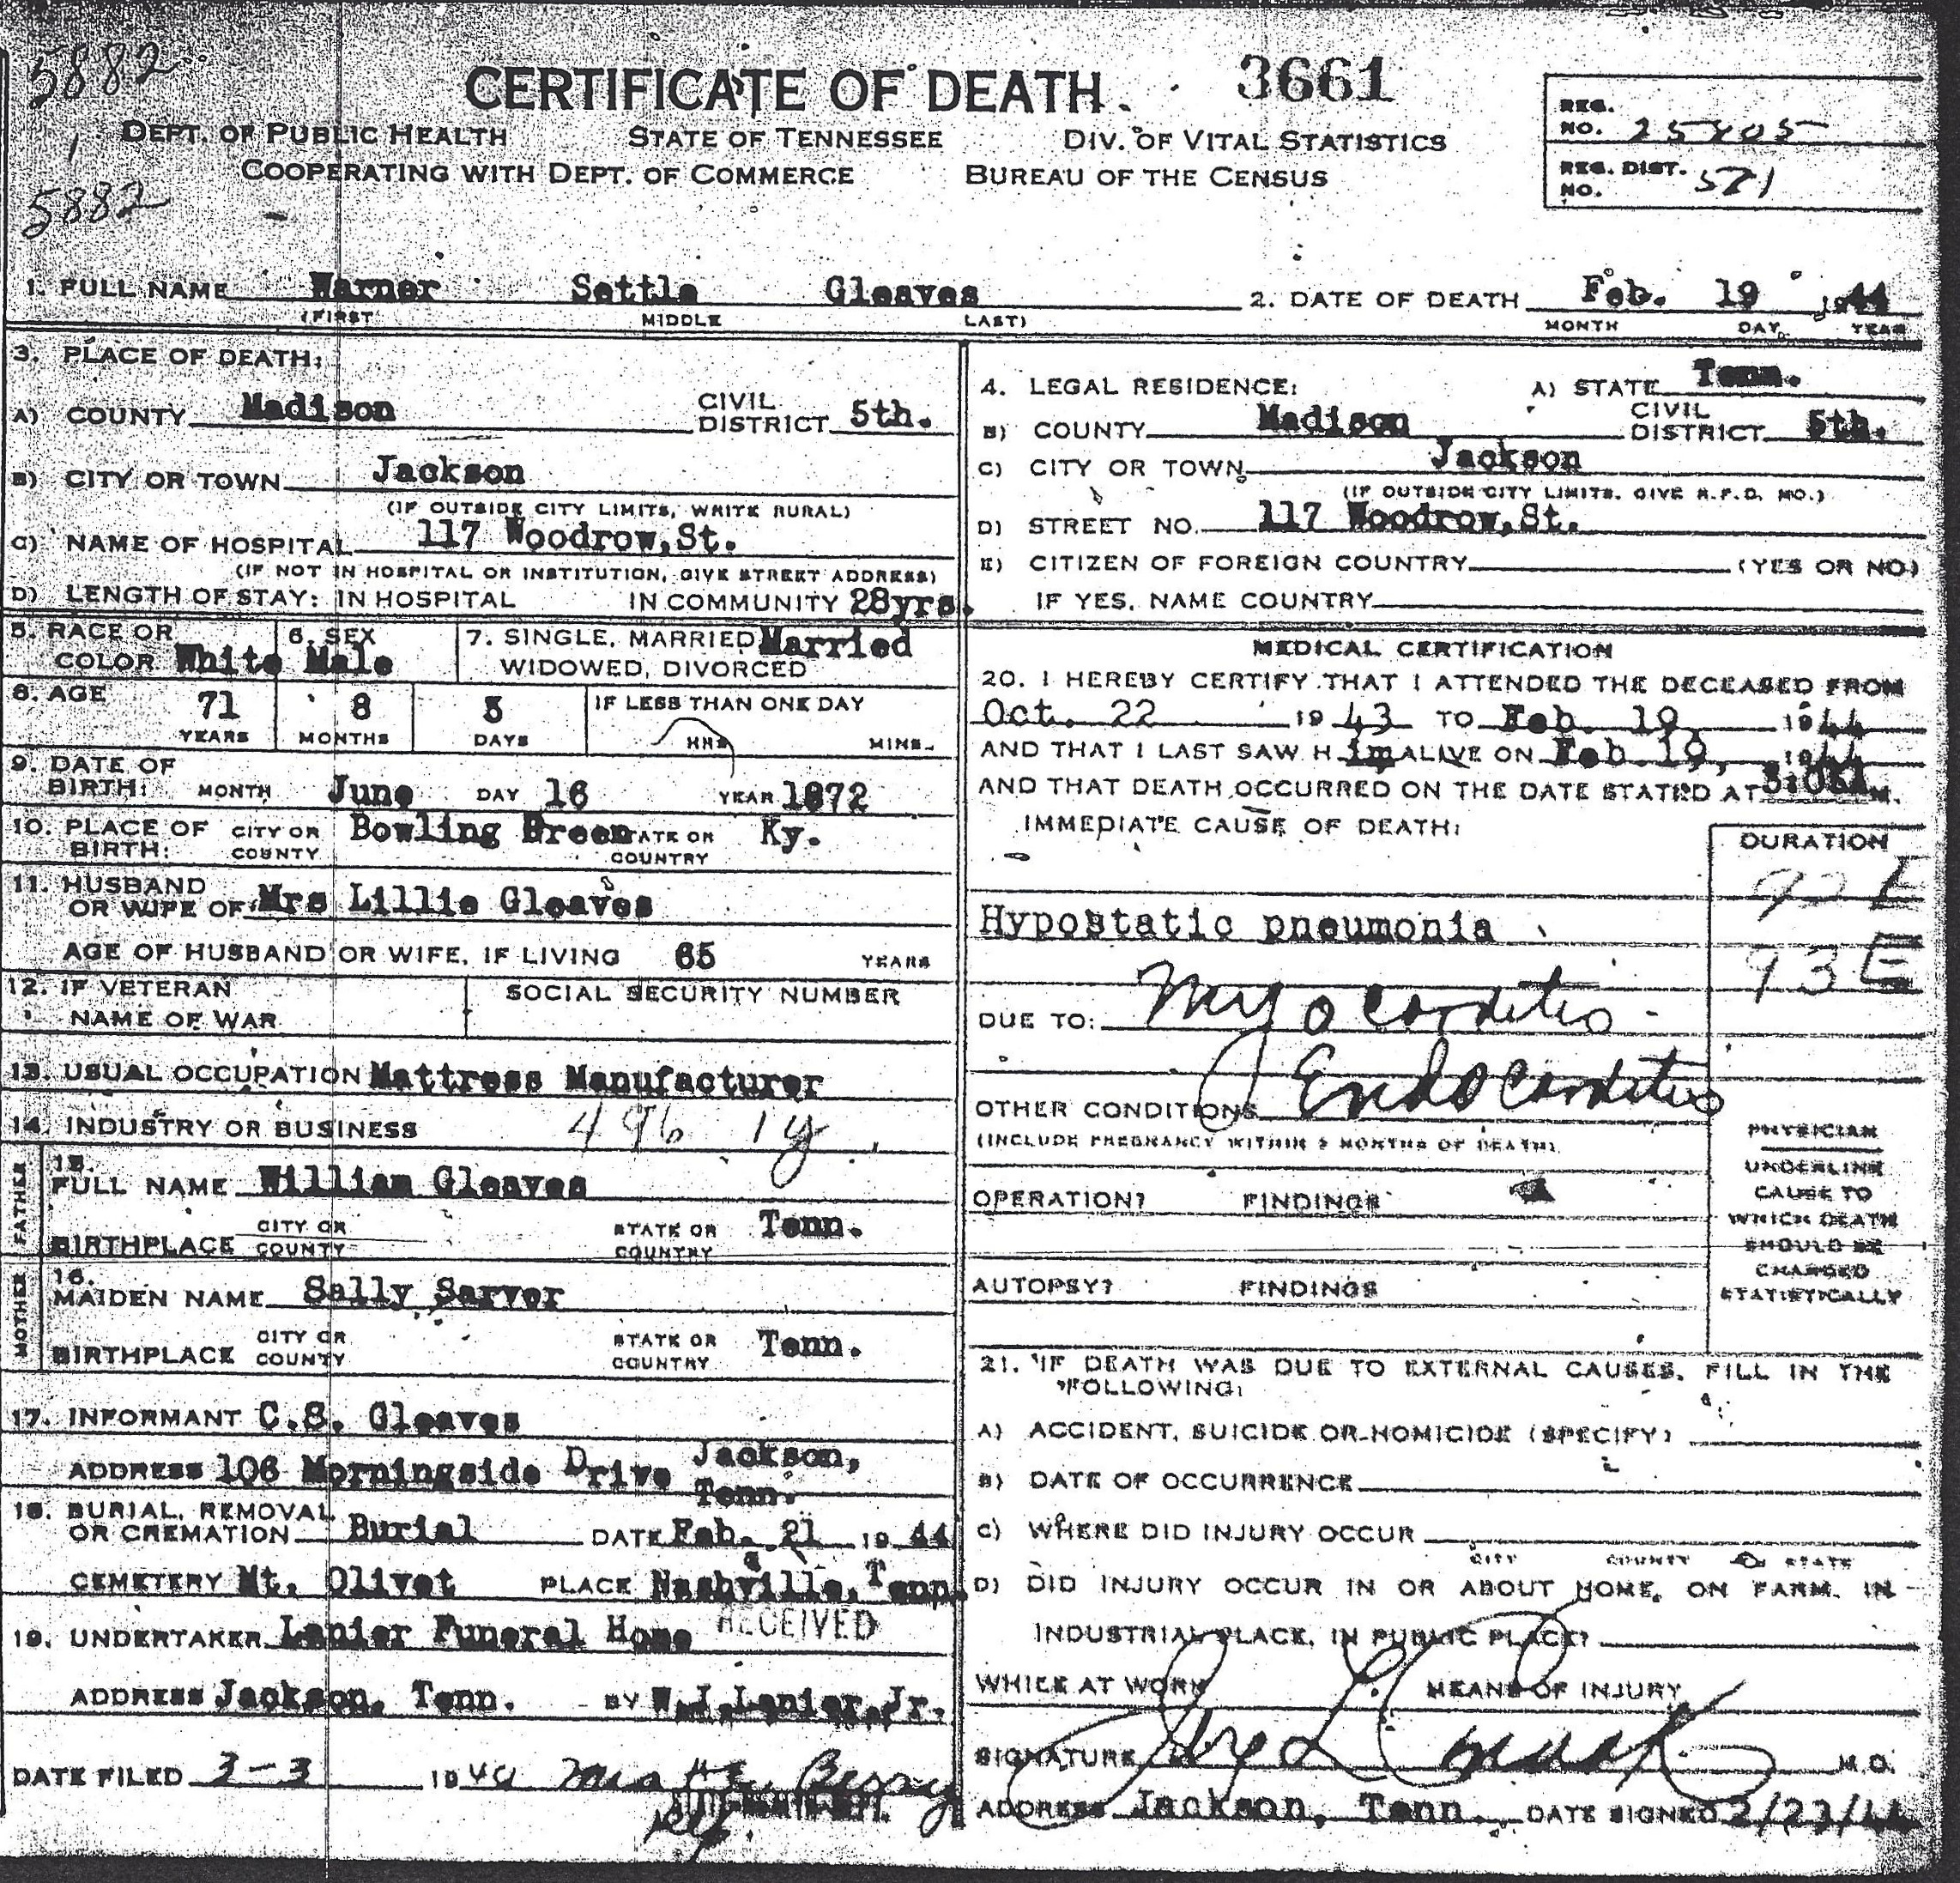 5882
1
5882
CERTIFICATE OF DEATH. 3661
DEPT. OF PUBLIC HEALTH STATE OF TENNESSEE DIV. OF VITAL STATISTICS
COOPERATING WITH DEPT. OF COMMERCE BUREAU OF THE CENSUS
REG. NO.
REG. DIST. NO. 571
1. FULL NAME Warner Settle Gleaves
(FIRST MIDDLE LAST)
2. DATE OF DEATH Feb. 19 1944
MONTH DAY YEAR
3. PLACE OF DEATH:
A) COUNTY Madison CIVIL DISTRICT 5th.
B) CITY OR TOWN Jackson
(IF OUTSIDE CITY LIMITS, WRITE RURAL)
C) NAME OF HOSPITAL 117 Woodrow,St.
(IF NOT IN HOSPITAL OR INSTITUTION, GIVE STREET ADDRESS)
D) LENGTH OF STAY: IN HOSPITAL IN COMMUNITY 28yrs.
4. LEGAL RESIDENCE: A) STATE Tenn.
B) COUNTY Madison CIVIL DISTRICT 5th.
C) CITY OR TOWN Jackson
(IF OUTSIDE CITY LIMITS, GIVE R.F.D. NO.)
D) STREET NO. 117 Woodrow,St.
E) CITIZEN OF FOREIGN COUNTRY (YES OR NO)
IF YES, NAME COUNTRY
5. RACE OR COLOR White 6. SEX Male 7. SINGLE, MARRIED WIDOWED, DIVORCED Married
8. AGE 71 YEARS 8 MONTHS 3 DAYS IF LESS THAN ONE DAY HRS MINS.
9. DATE OF BIRTH: MONTH June DAY 16 YEAR 1872
10. PLACE OF BIRTH: CITY OR COUNTY Bowling Green STATE OR COUNTRY Ky.
11. HUSBAND OR WIFE OF Mrs Lillie Gleaves
AGE OF HUSBAND OR WIFE, IF LIVING 65 YEARS
12. IF VETERAN NAME OF WAR SOCIAL SECURITY NUMBER
13. USUAL OCCUPATION Mattress Manufacturer
14. INDUSTRY OR BUSINESS 496 1y
FATHER
15. FULL NAME William Gleaves
BIRTHPLACE CITY OR COUNTY STATE OR COUNTRY Tenn.
MOTHER
16. MAIDEN NAME Sally Sarver
BIRTHPLACE CITY OR COUNTY STATE OR COUNTRY Tenn.
17. INFORMANT C.S. Gleaves
ADDRESS 106 Morningside Drive Jackson, Tenn.
18. BURIAL, REMOVAL OR CREMATION Burial DATE Feb. 21 1944
CEMETERY Mt. Olivet PLACE Nashville, Tenn.
19. UNDERTAKER Lanier Funeral Home RECEIVED
ADDRESS Jackson, Tenn. BY W.I.Lanier,Jr.
DATE FILED 3-3 19 Berry
MEDICAL CERTIFICATION
20. I HEREBY CERTIFY THAT I ATTENDED THE DECEASED FROM
Oct. 22 1943 TO Feb 19 1944
AND THAT I LAST SAW H im ALIVE ON Feb.19, 1944
AND THAT DEATH OCCURRED ON THE DATE STATED AT M.
IMMEDIATE CAUSE OF DEATH: DURATION
Hypostatic pneumonia
93 E
DUE TO: Myocarditis
Endocarditis
OTHER CONDITIONS
(INCLUDE PREGNANCY WITHIN 3 MONTHS OF DEATH)
OPERATION? FINDINGS
AUTOPSY? FINDINGS
PHYSICIAN
UNDERLINE
CAUSE TO
WHICH DEATH
SHOULD BE
CHARGED
STATISTICALLY
21. IF DEATH WAS DUE TO EXTERNAL CAUSES, FILL IN THE
FOLLOWING:
A) ACCIDENT, SUICIDE OR HOMICIDE (SPECIFY)
B) DATE OF OCCURRENCE
C) WHERE DID INJURY OCCUR
CITY COUNTY STATE
D) DID INJURY OCCUR IN OR ABOUT HOME, ON FARM, IN
INDUSTRIAL PLACE, IN PUBLIC PLACE?
WHILE AT WORK MEANS OF INJURY
SIGNATURE M.D.
ADDRESS Jackson, Tenn. DATE SIGNED 2/23/44